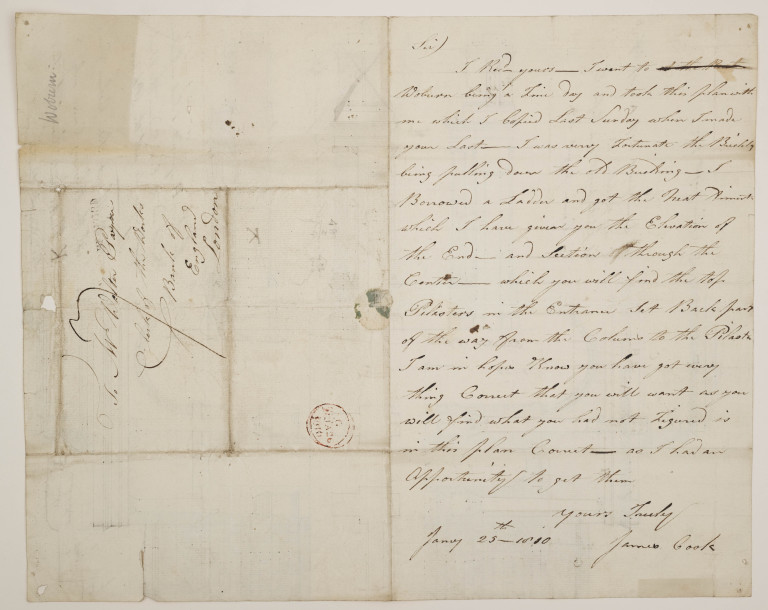 Woburn
To Mr Walter Payne
Clerk of the
Bank of
England
London
Sir)
I Recd yours — I went to
Woburn being a Fine day and took this plan with
me which I Copied Last Sunday when I made
your Last — I was very Fortunate the
being pulling down the old Building — I
Borrowed a Ladder and got the
which I have given you the Elevation of
the End — and Section through the
Centre — which you will find the top
Pilasters in the Entrance Set Back part
of the way from the Column to the Pilaster
I am in hopes Know you have got every
thing Correct that you will want as you
will find what you had not Figured is
in this plan Correct — as I had an
Opportunity to get them
Yours Truely
Jany 25th — 1810 James Cook